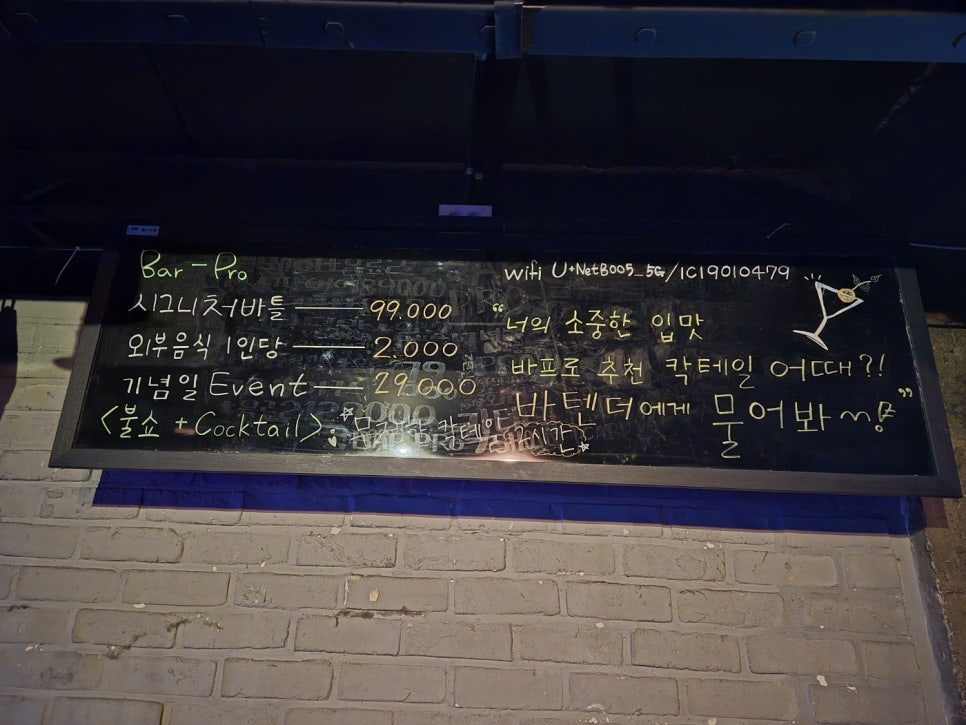 Bar-Pro
시그니처바틀 ─── 99.000
외부음식 1인당 ─── 2.000
기념일 Event ─── 29.000
<불쇼 + Cocktail>
wifi U+NetB005_5G/1C19010479
"너의 소중한 입맛
바프로 추천 칵테일 어때?!
바텐더에게 물어봐~!"